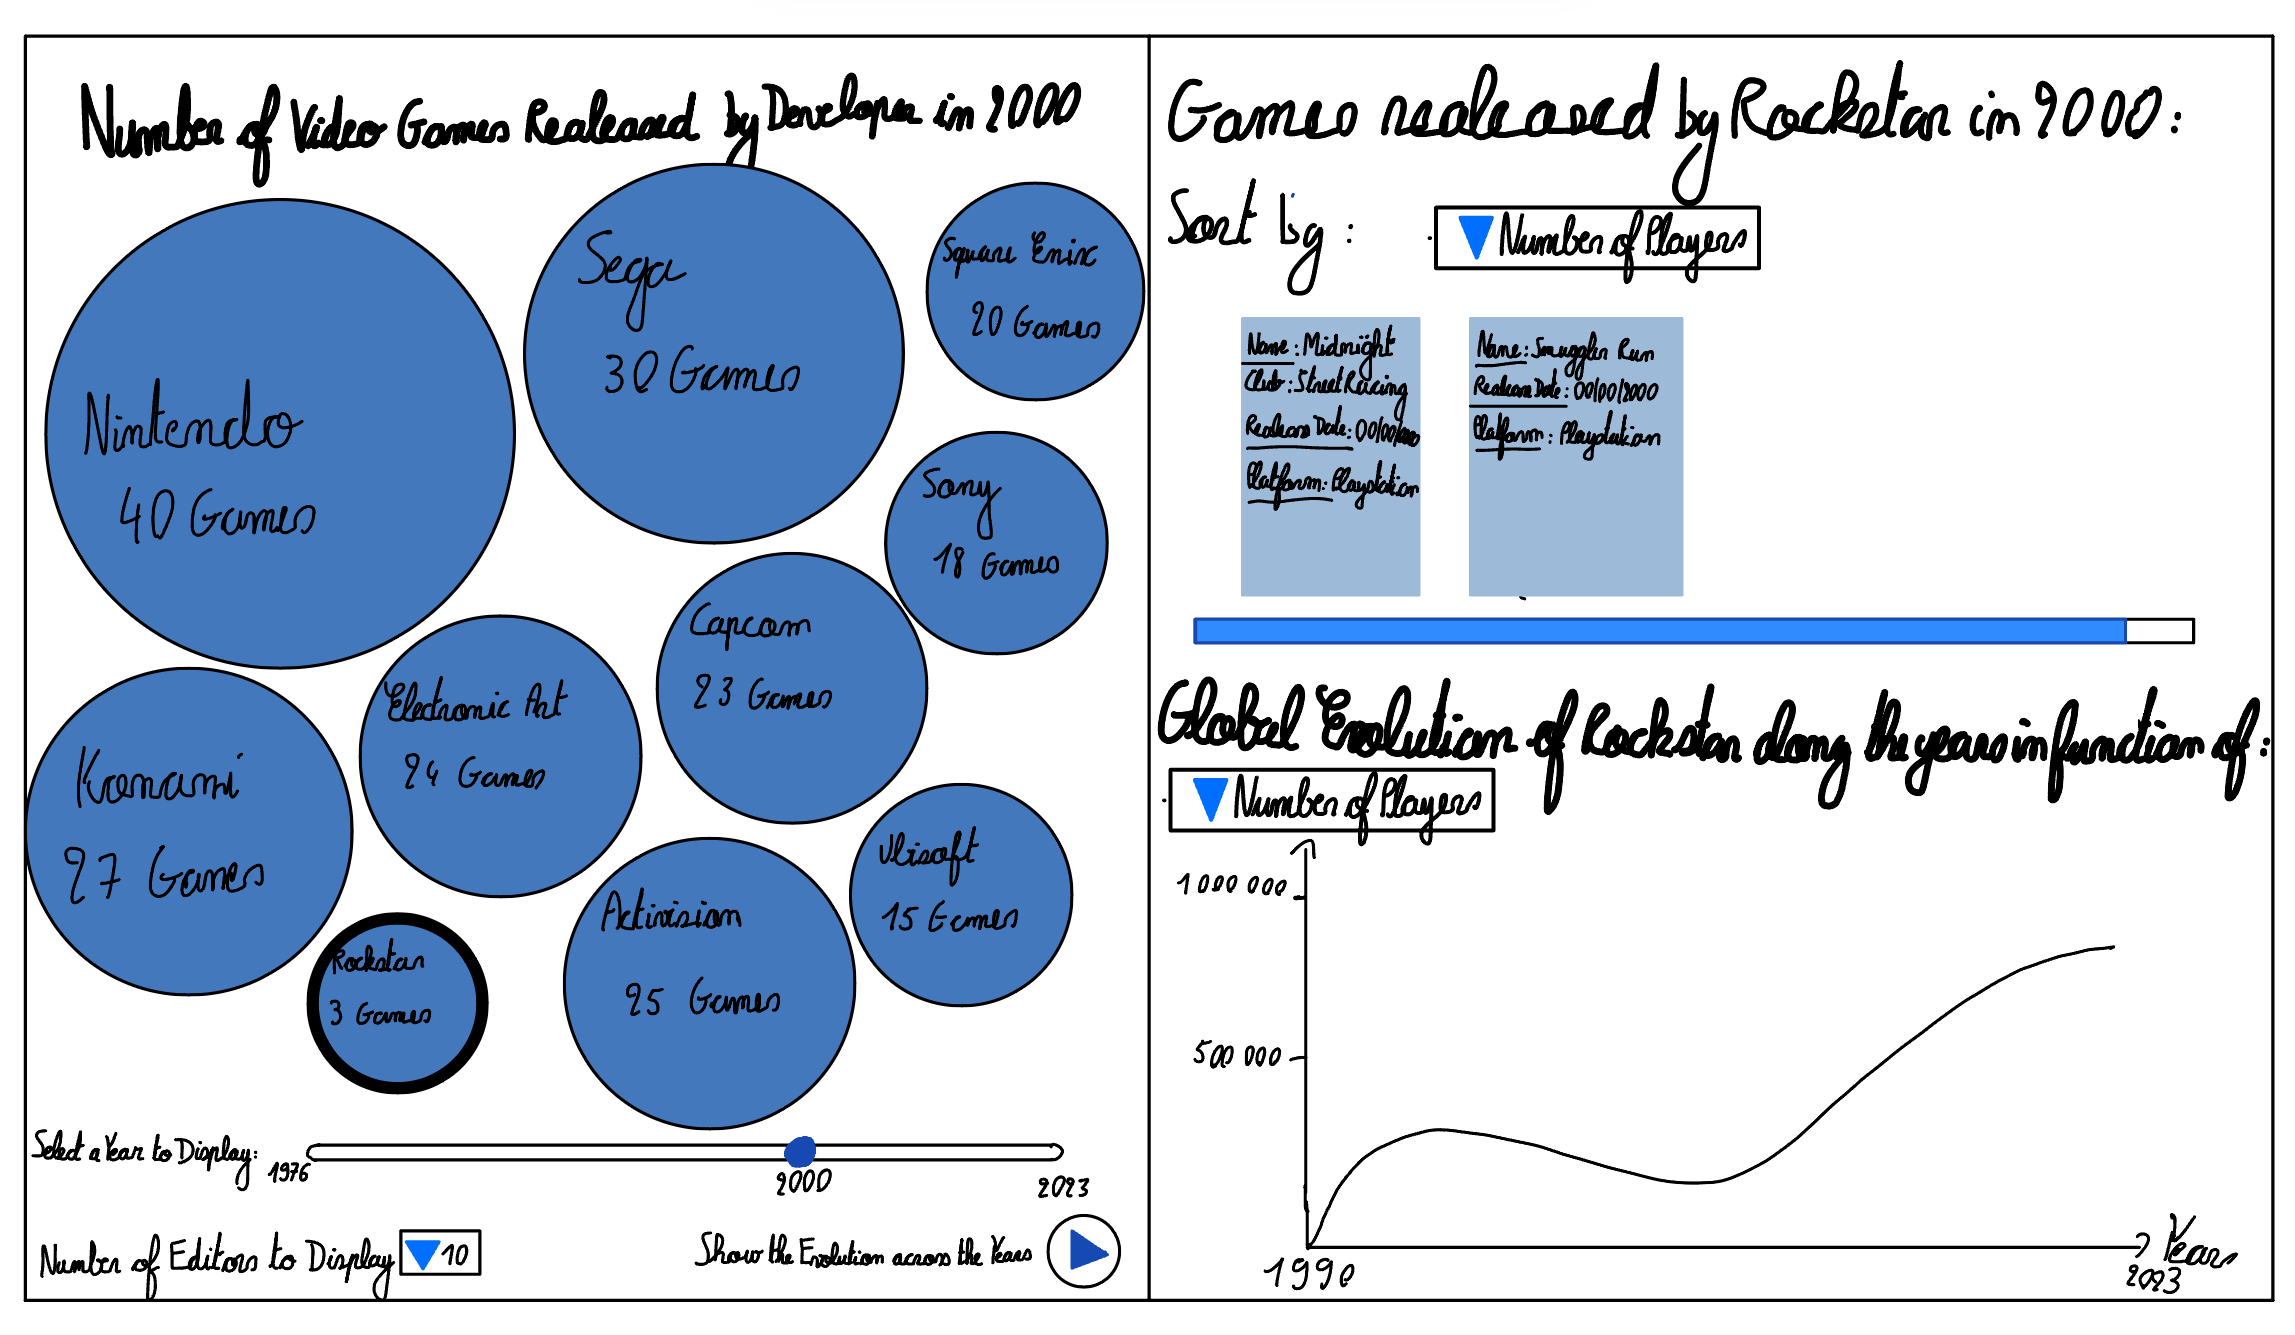 Number of Video Games Realeased by Developer in 2000
Nintendo
40 Games
Sega
30 Games
Square Enix
20 Games
Sony
18 Games
Capcom
23 Games
Electronic Art
24 Games
Konami
27 Games
Rockstar
3 Games
Activision
25 Games
Ubisoft
15 Games
Select a Year to Display:
1976
2000
2023
Number of Editors to Display
10
Show the Evolution across the Years
Games realeased by Rockstar in 2000:
Sort by :
Number of Players
Name : Midnight
Club : Street Racing
Realease Date: 00/00/2000
Platform: Playstation
Name: Smuggler Run
Realease Date: 00/00/2000
Platform : Playstation
Global Evolution of Rockstar along the years in function of :
Number of Players
1 000 000
500 000
1990
2023
Years